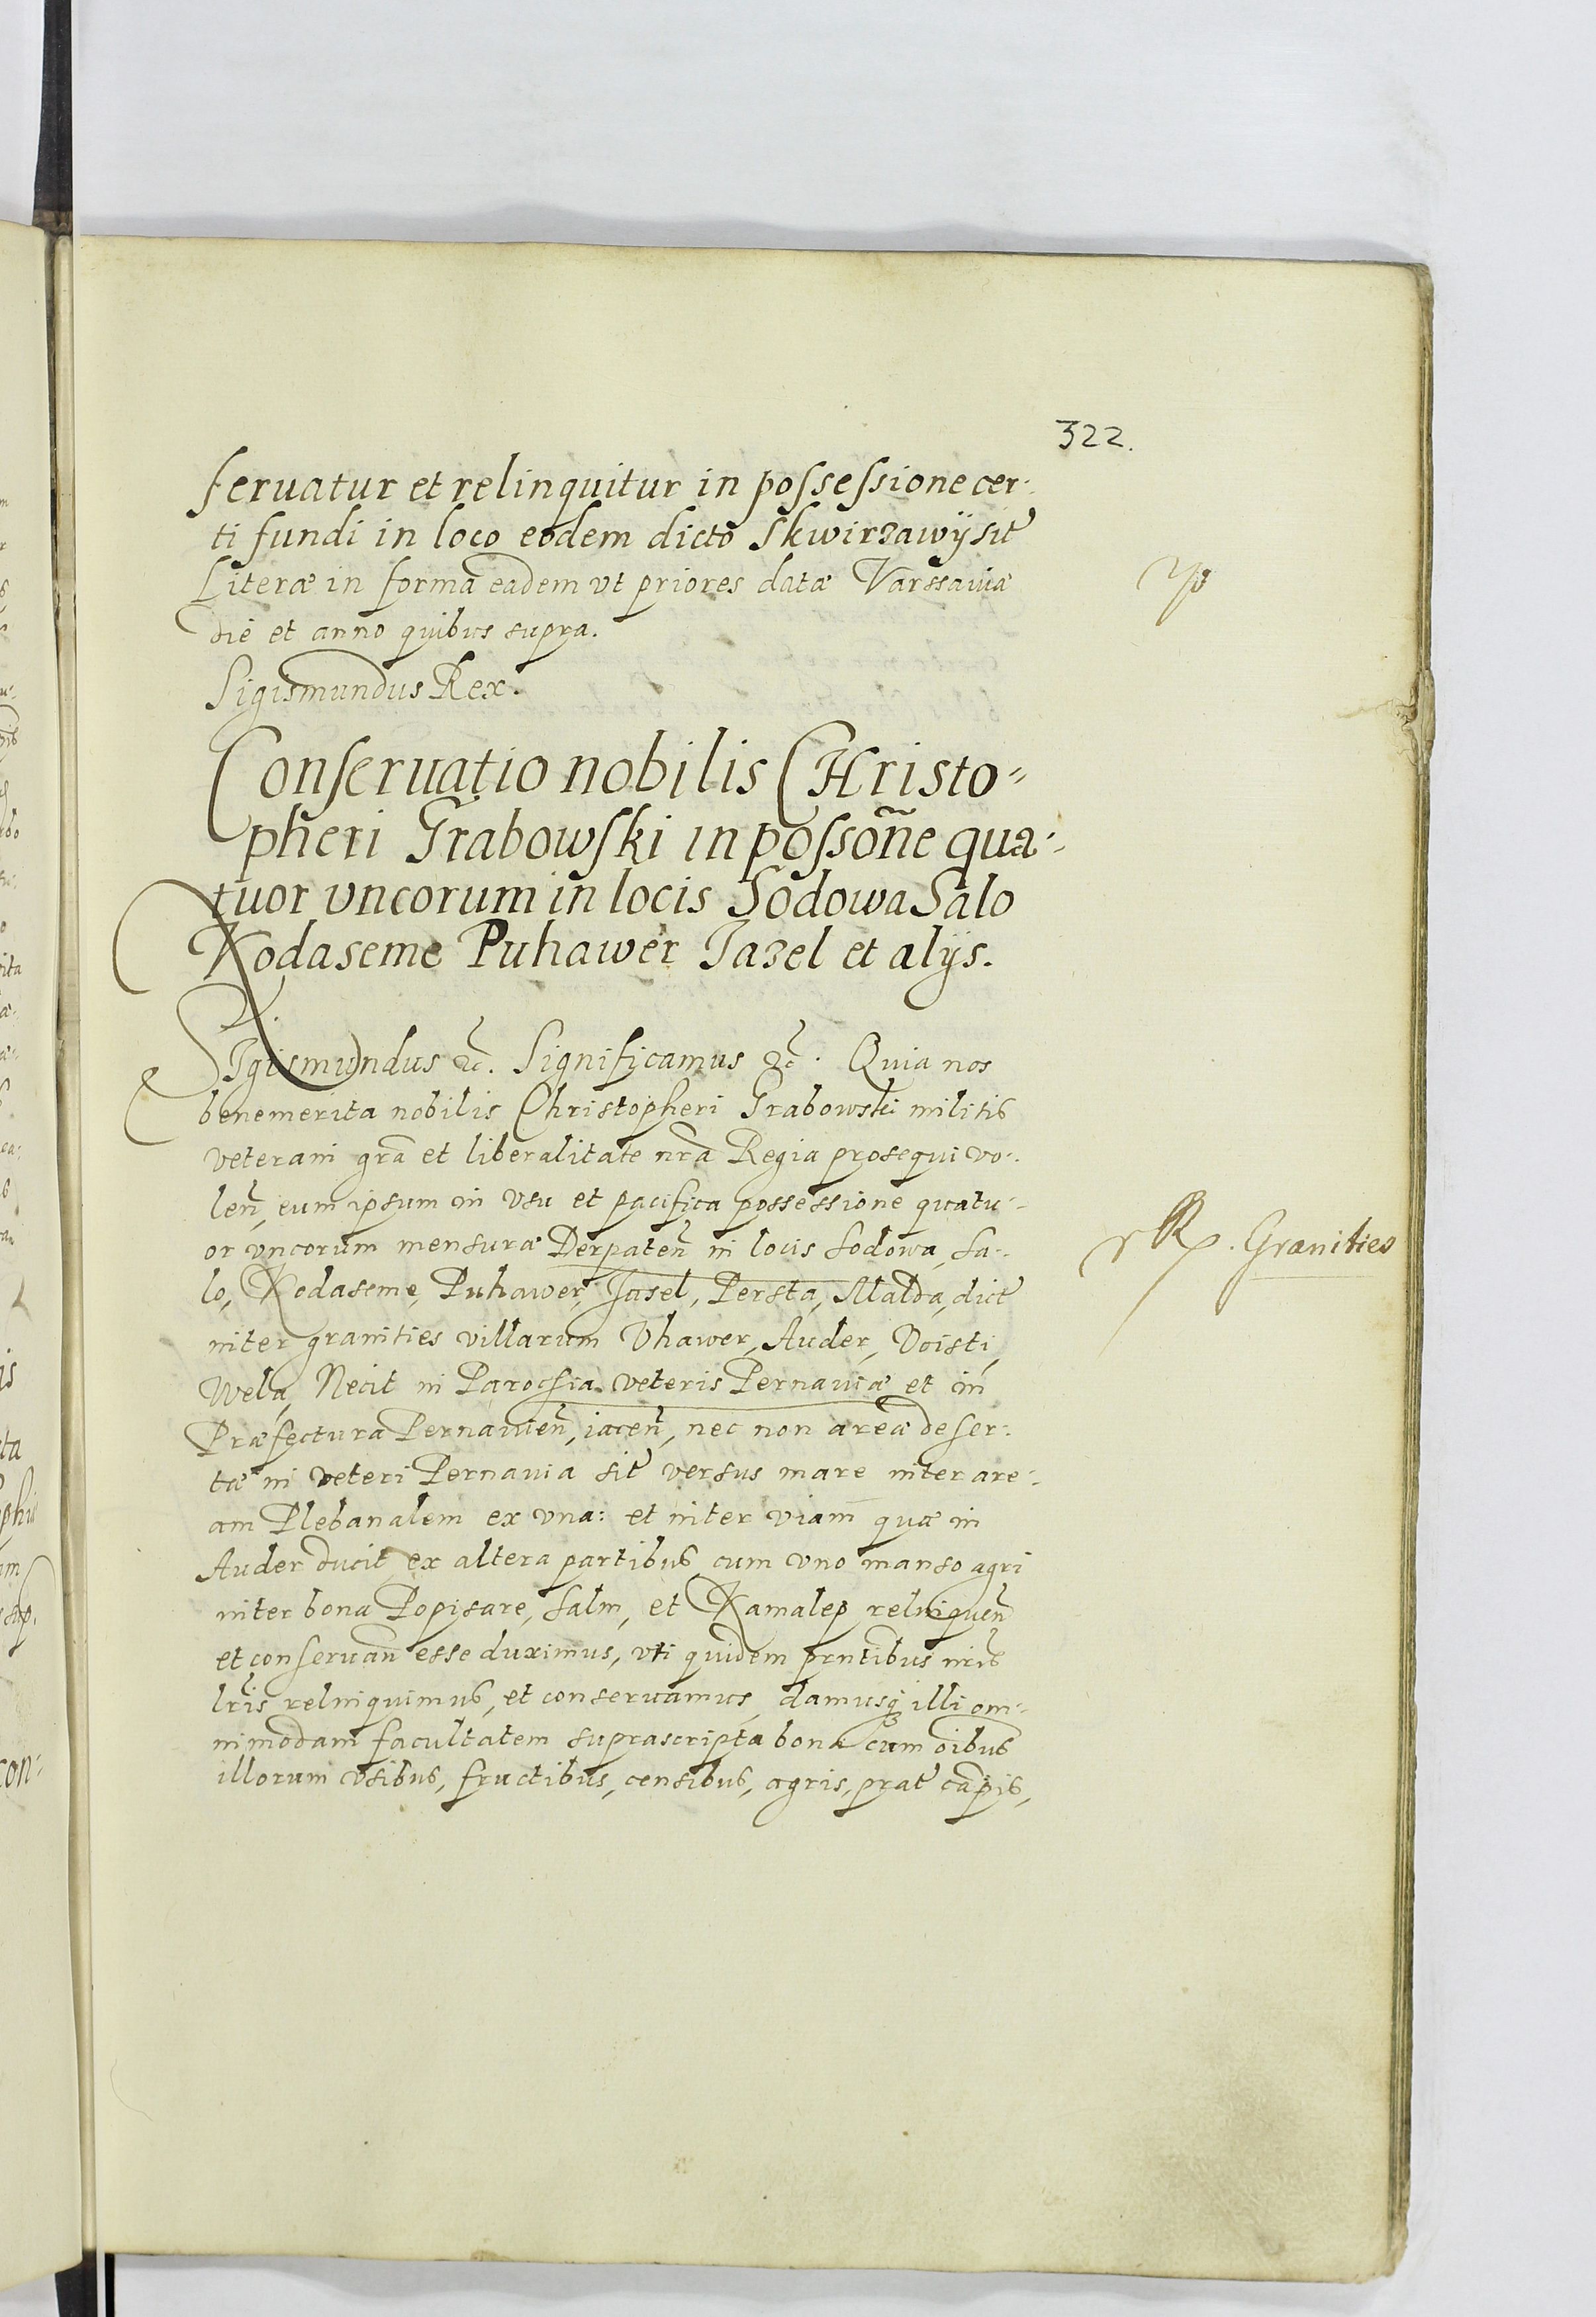 322.
seruatur et relinquitur in possessione cer-
ti fundi in loco eodem dicto Skwirzawÿ sit
Literæ in forma eadem vt priores datæ Varssauiæ
die et anno quibus supra.
Sigismundus Rex.
Conseruatio nobilis CHristo-
pheri Grabowski in possoñe qua-
tuor vncorum in locis Sodowa Salo
Kodaseme Puhawer Jazel et alijs.
SIgismundus &c. Significamus &c. Quia nos
benemerita nobilis Christopheri Grabowski militis
veterani gra et liberalitate nra Regia prosequi vo-
leñ, eum ipsum in vsu et pacifica possessione quatu-
or vncorum mensuræ Derpateñ in locis Sodowa, Sa-
lo, Kodaseme, Puhawer, Jasel, Persta, Malda, dict
inter granities villarum Vhawer, Auder, Voisti,
Wela, Necit in Parochia veteris Pernauiæ et in
Præfectura Pernauieñ, iaceñ, nec non areæ deser-
tæ in veteri Pernauia sit versus mare inter are-
am Plebanalem ex vna: et inter viam quæ in
Auder ducit ex altera partibus cum vno manso agri
inter bona Popisare, Salm, et Kamalep relinqueñ
et conseruañ esse duximus, vti quidem prntibus nris
lris relinquimus, et conseruamus, damusq illi om-
nimodam facultatem suprascripta bona cum oibus
illorum vsibus, fructibus, censibus, agris, prat campis,
Granities